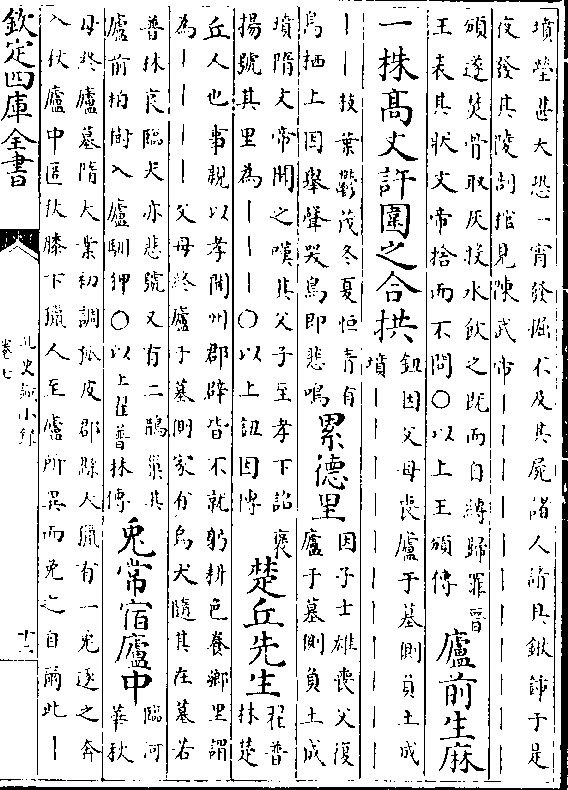 墳塋甚大恐一宵發掘不及其屍諸人請具鍬鍤于是
夜發其陵剖棺見陳武帝｜｜｜｜｜｜｜｜｜｜｜
頒遂焚骨取灰投水飲之既而自縛歸罪晉
王表其狀文帝捨而不問○以上王頒傳
廬前生麻
一株高丈許圍之合拱
鈕因父母喪廬于墓側負土成
墳｜｜｜｜｜｜｜｜｜｜｜
｜｜枝葉鬱茂冬夏恒青有
鳥栖上因舉聲哭鳥即悲鳴
累德里
因子士雄喪父復
廬于墓側負土成
墳隋文帝聞之嘆其父子至孝下詔褒
揚號其里為｜｜｜○以上鈕因傳
楚丘先生
翟普
林楚
丘人也事親以孝聞州郡辟皆不就躬耕色養鄉里謂
為｜｜｜｜父母終廬于墓側家有烏犬隨其在墓若
普林哀臨犬亦悲號又有二鵲巢其
廬前栢樹入廬馴狎○以上翟普林傳
兎常宿廬中
臨河
華秋
母終廬墓隋大業初調狐皮郡縣大獵有一兎逐之奔
入秋廬中匿秋膝下獵人至廬所異而免之自爾此｜
欽定四庫全書
北史識小録
卷七
十二